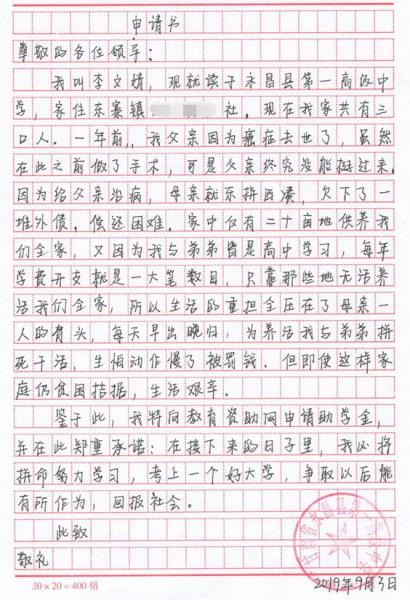 申请书
尊敬的各位领导：
我叫李文婧，现就读于永昌县第一高级中
学，家住东寨镇 社。现在我家共有三
口人。一年前，我父亲因为癌症去世了，虽然
在此之前做了手术，可是父亲终究没能挺过来。
因为给父亲治病，母亲就东拼西凑，欠下了一
堆外债。偿还困难。家中仅有二十亩地供养我
们全家，又因为我与弟弟皆是高中学习，每年
学费开支就是一大笔数目，只靠那些地无法养
活我们全家，所以生活的重担全压在了母亲一
人的肩头，每天早出晚归，为养活我与弟弟拼
死干活，生怕动作慢了被罚钱。但即使这样家
庭仍贫困拮据，生活艰辛。
鉴于此，我特向教育资助网申请助学金，
并在此郑重承诺：在接下来的日子里，我必将
拼命努力学习，考上一个好大学，争取以后能
有所作为，回报社会。
此致
敬礼
20×20=400格
2019年9月3日